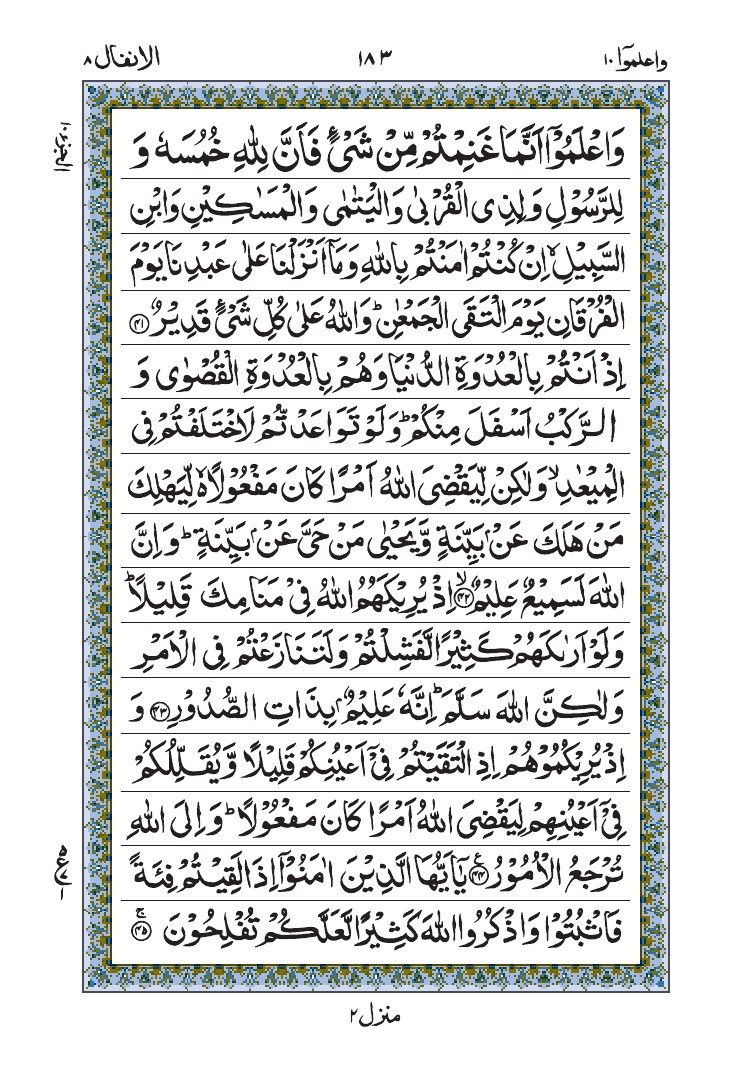 الانفال ۸ ۱۸۳ واعلموٓا ۱۰
الجزء ۱۰
وَاعْلَمُوْۤا اَنَّمَا غَنِمْتُمْ مِّنْ شَیْءٍ فَاَنَّ لِلّٰهِ خُمُسَهٗ وَ
لِلرَّسُوْلِ وَلِذِی الْقُرْبٰی وَالْیَتٰمٰی وَالْمَسٰكِیْنِ وَابْنِ
السَّبِیْلِ ۙ اِنْ كُنْتُمْ اٰمَنْتُمْ بِاللّٰهِ وَمَاۤ اَنْزَلْنَا عَلٰی عَبْدِنَا یَوْمَ
الْفُرْقَانِ یَوْمَ الْتَقَی الْجَمْعٰنِ ؕ وَاللّٰهُ عَلٰی كُلِّ شَیْءٍ قَدِیْرٌ ﴿۴۱﴾
اِذْ اَنْتُمْ بِالْعُدْوَةِ الدُّنْیَا وَهُمْ بِالْعُدْوَةِ الْقُصْوٰی وَ
الرَّكْبُ اَسْفَلَ مِنْكُمْ ؕ وَلَوْ تَوَاعَدْتُّمْ لَاخْتَلَفْتُمْ فِی
الْمِیْعٰدِ ۙ وَلٰكِنْ لِّیَقْضِیَ اللّٰهُ اَمْرًا كَانَ مَفْعُوْلًا ۙ لِّیَهْلِكَ
مَنْ هَلَكَ عَنْۢ بَیِّنَةٍ وَّیَحْیٰی مَنْ حَیَّ عَنْۢ بَیِّنَةٍ ؕ وَاِنَّ
اللّٰهَ لَسَمِیْعٌ عَلِیْمٌ ۙ﴿۴۲﴾ اِذْ یُرِیْكَهُمُ اللّٰهُ فِیْ مَنَامِكَ قَلِیْلًا ؕ
وَلَوْ اَرٰىكَهُمْ كَثِیْرًا لَّفَشِلْتُمْ وَلَتَنَازَعْتُمْ فِی الْاَمْرِ
وَلٰكِنَّ اللّٰهَ سَلَّمَ ؕ اِنَّهٗ عَلِیْمٌۢ بِذَاتِ الصُّدُوْرِ ﴿۴۳﴾ وَ
اِذْ یُرِیْكُمُوْهُمْ اِذِ الْتَقَیْتُمْ فِیْۤ اَعْیُنِكُمْ قَلِیْلًا وَّیُقَلِّلُكُمْ
فِیْۤ اَعْیُنِهِمْ لِیَقْضِیَ اللّٰهُ اَمْرًا كَانَ مَفْعُوْلًا ؕ وَاِلَی اللّٰهِ
تُرْجَعُ الْاُمُوْرُ ﴿۴۴﴾ یٰۤاَیُّهَا الَّذِیْنَ اٰمَنُوْۤا اِذَا لَقِیْتُمْ فِئَةً
فَاثْبُتُوْا وَاذْكُرُوا اللّٰهَ كَثِیْرًا لَّعَلَّكُمْ تُفْلِحُوْنَ ۚ﴿۴۵﴾
منزل ۲